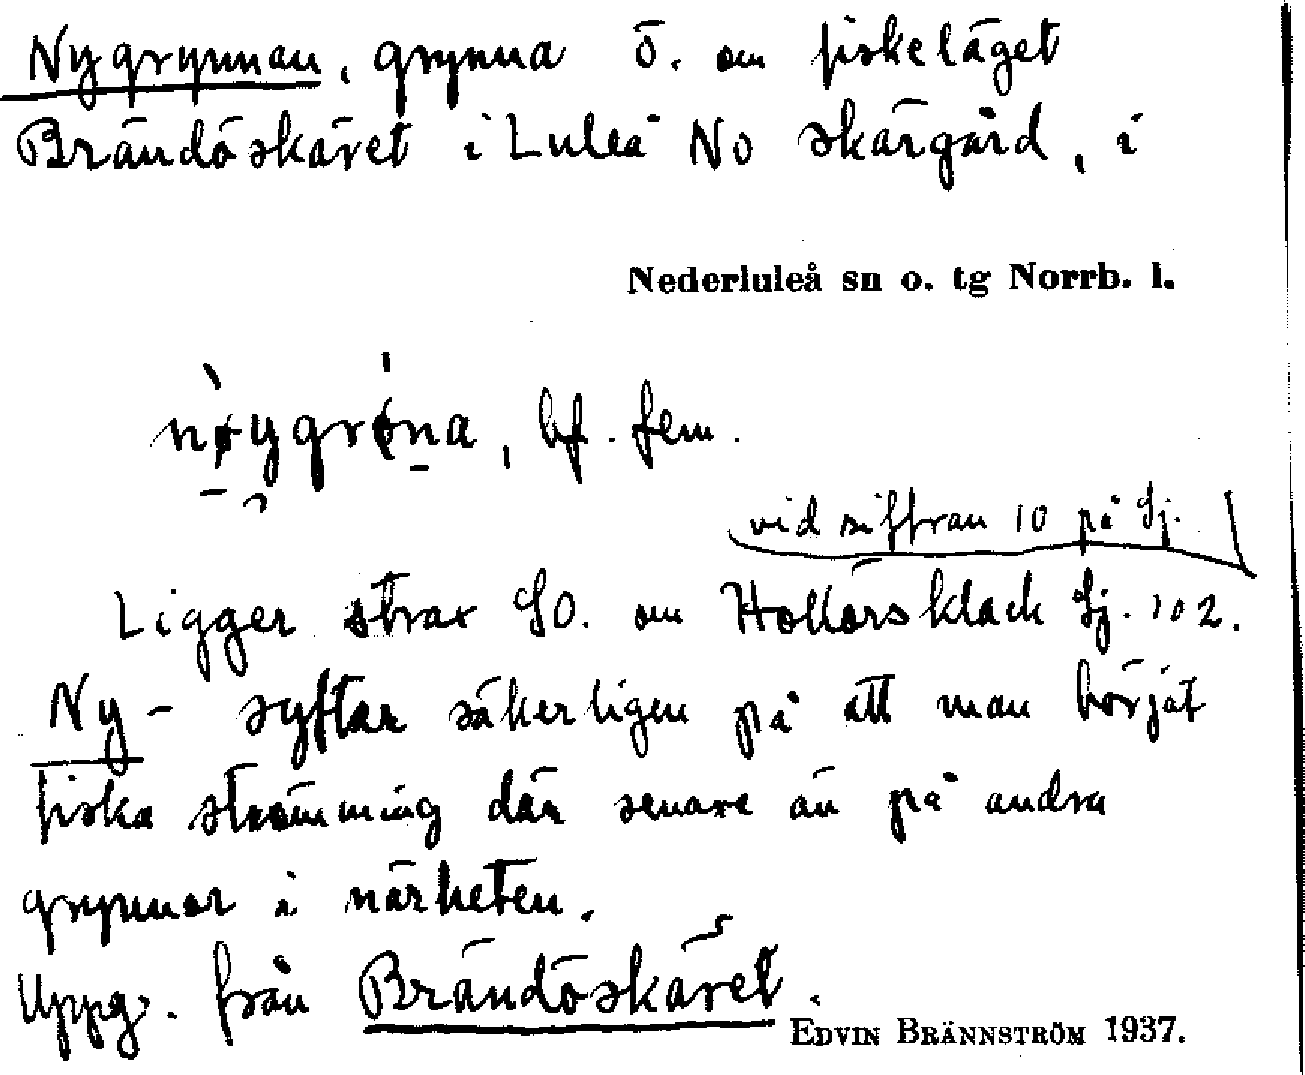 Nygrynnan, grynna Ö. om fiskeläget
Brändöskäret i Luleå No skärgård, i
Nederluleå sn o. tg Norrb. l.
nøygrøna, bf. fem.
vid siffran 10 på Sj.
Ligger strax SO. om Hollörsklack Sj. 102.
Ny- syftar säkerligen på att man börjat
fiska strömming där senare än på andra
grynnor i närheten.
Uppg. från Brändöskäret.
EDVIN BRÄNNSTRÖM 1937.